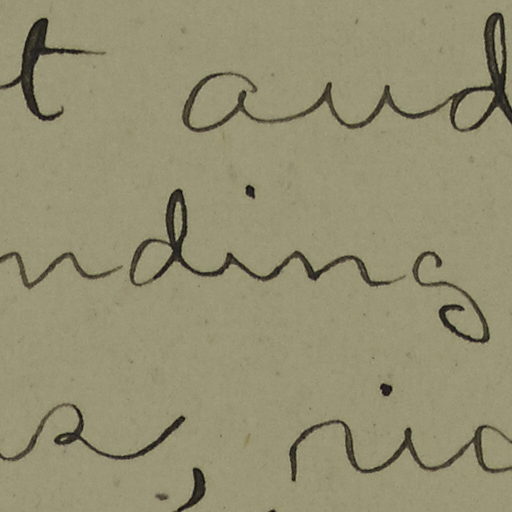 t and
nding
s, ric